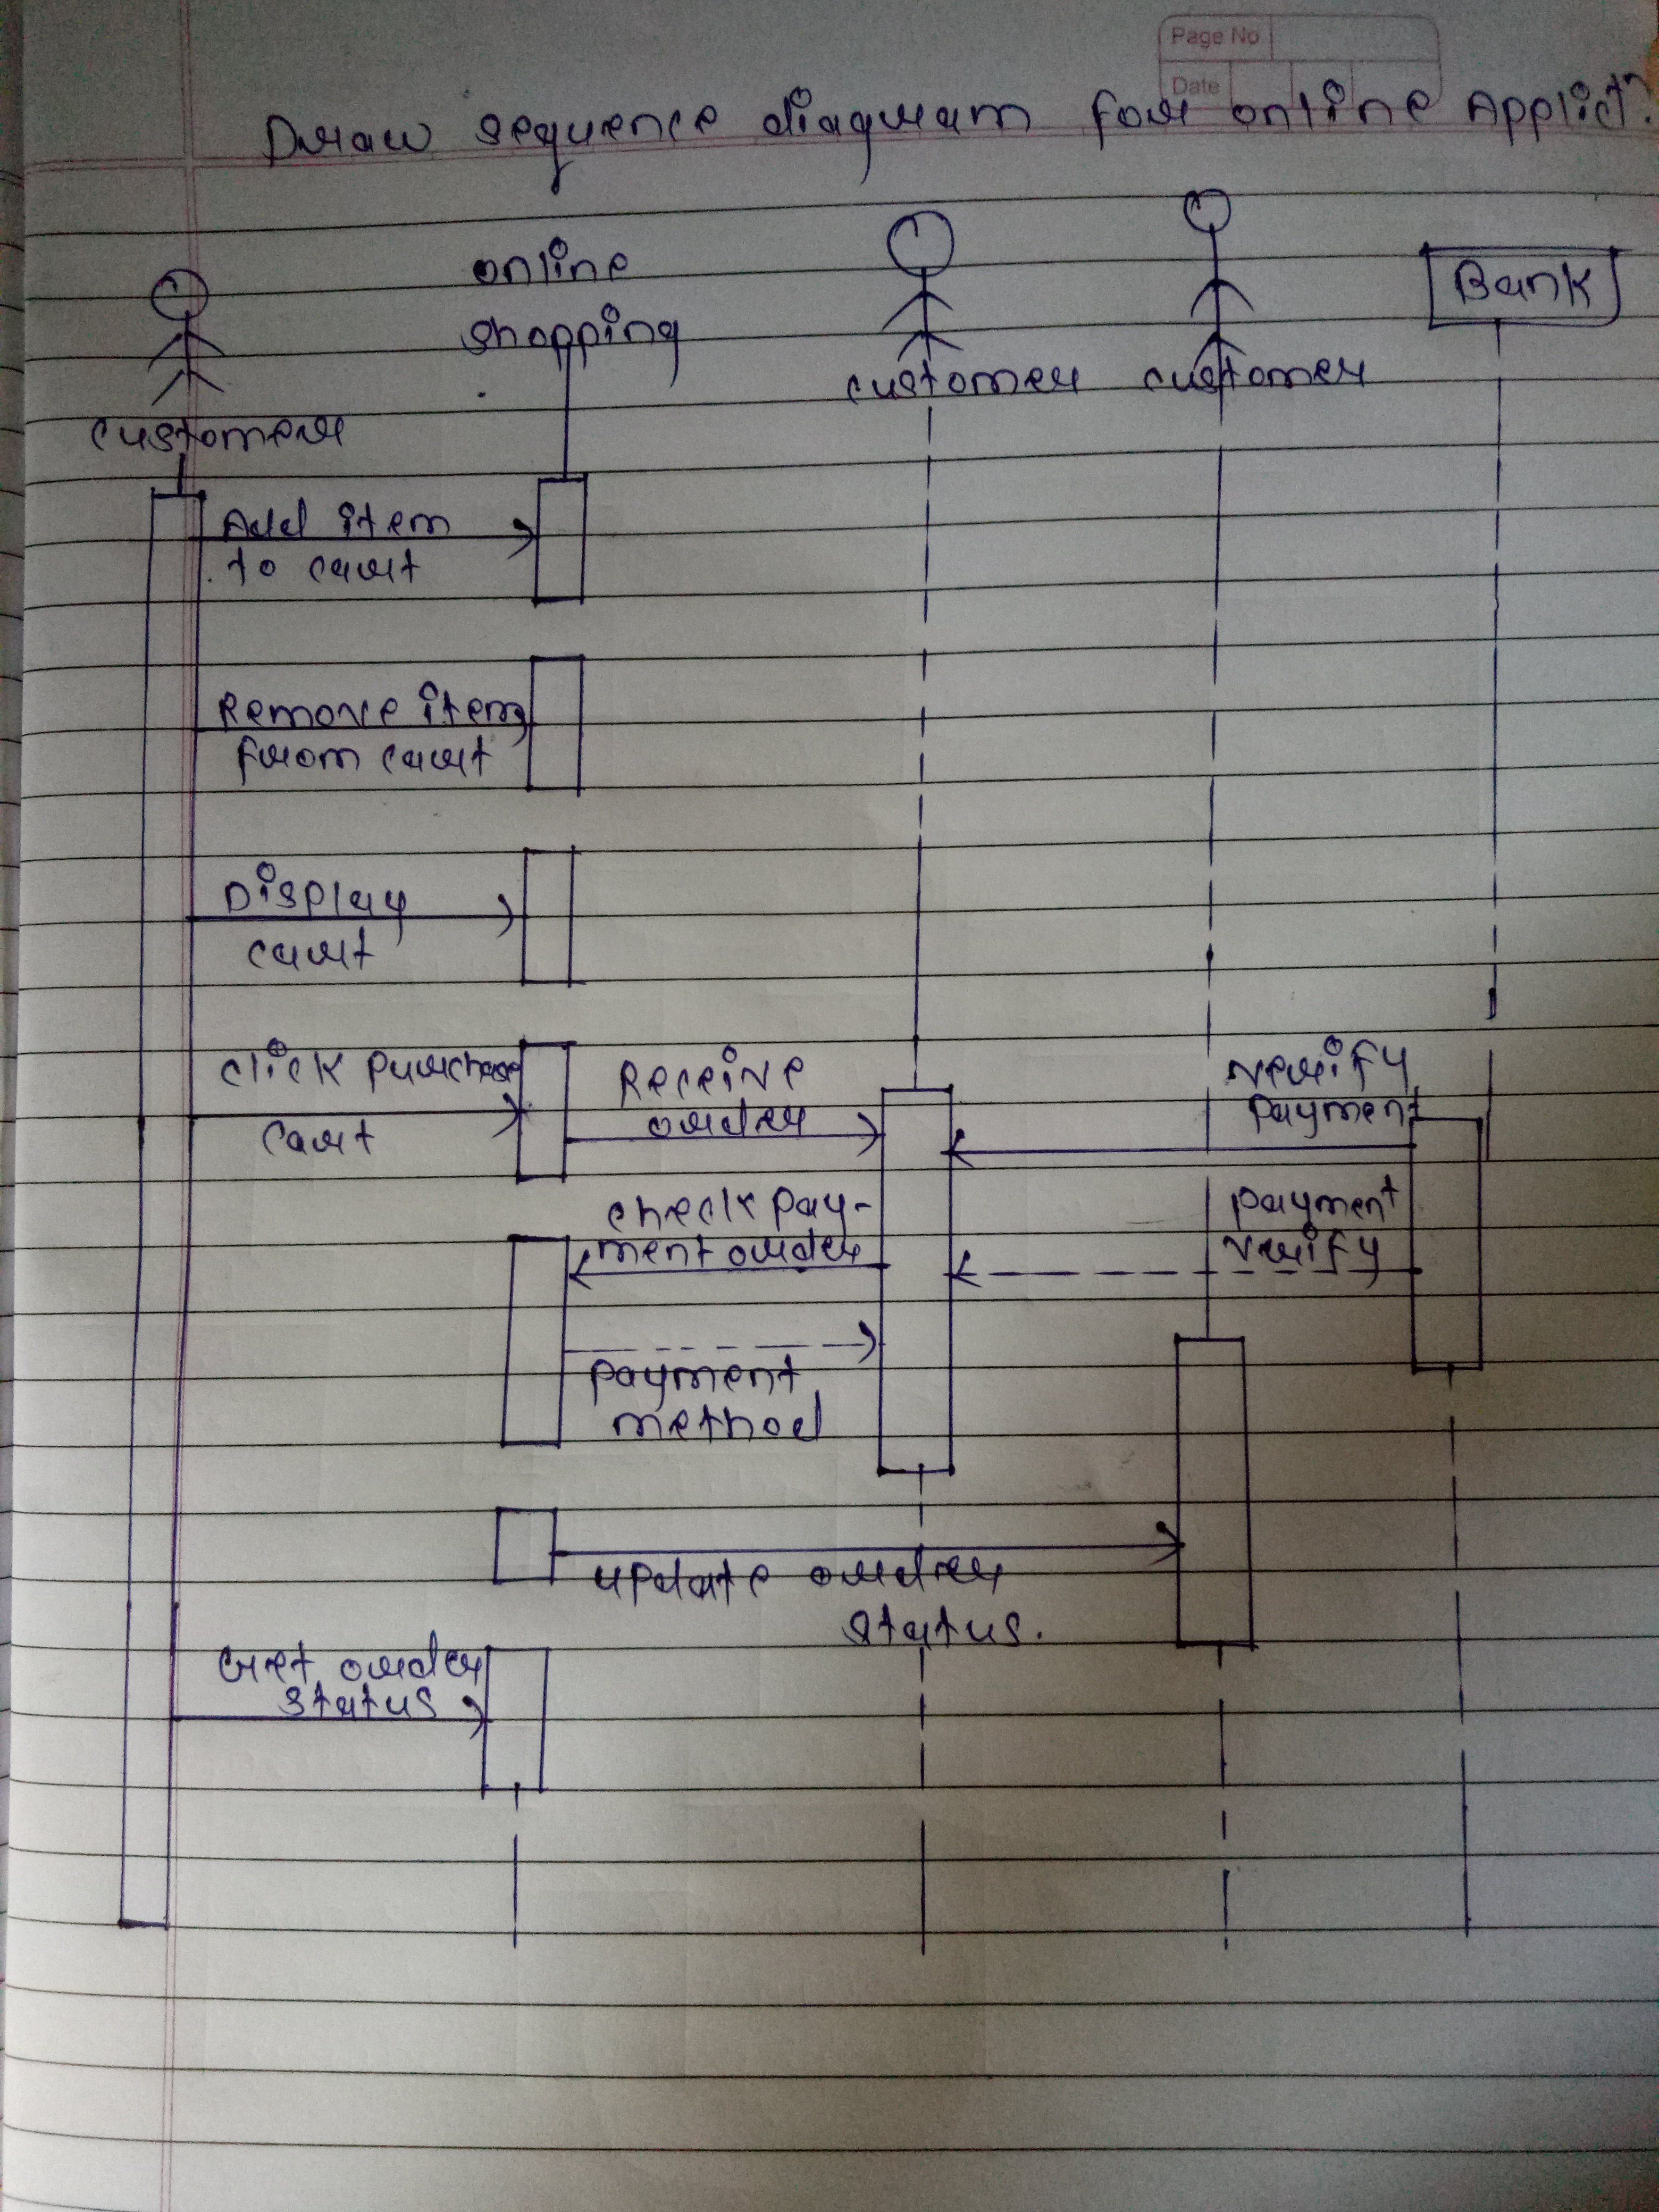 Page No
Date
Draw sequence diagram for online Applictn.
online
shopping
customer
customer
customer
Bank
Add item
to cart
Remove item
from cart
Display
cart
Click Purchase
cart
Receive
order
verify
Payment
check pay-
ment order
payment
verify
payment
method
update order
status.
Get order
status